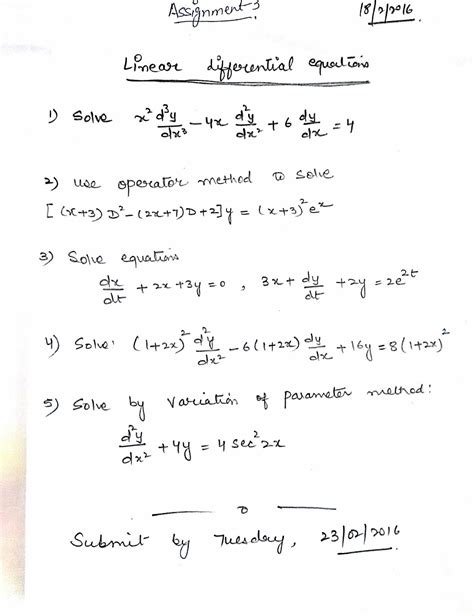 Assignment-3
18/2/2016
Linear differential equations
1) Solve x² d³y/dx³ - 4x d²y/dx² + 6 dy/dx = 4
2) use operator method to solve
[(x+3)D² - (2x+7)D + 2]y = (x+3)² eˣ
3) Solve equations
dx/dt + 2x + 3y = 0 , 3x + dy/dt + 2y = 2e²ᵗ
4) Solve: (1+2x)² d²y/dx² - 6(1+2x) dy/dx + 16y = 8(1+2x)²
5) Solve by Variation of parameter method:
d²y/dx² + 4y = 4 sec² 2x
Submit by Tuesday, 23/02/2016